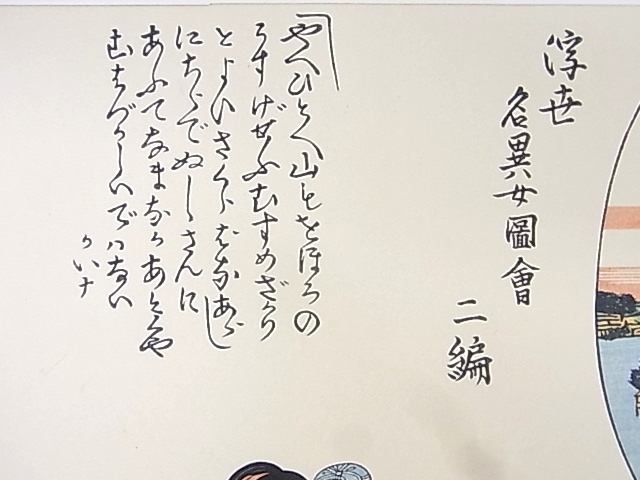 浮世
名異女圖會
二編
やへひとへ山もをぼろの
うすげせふむすめざかり
とよいさくらばなあらし
にちらでぬしさんに
あふてなまなかあとくや
むはづかしいでハない
かいナ